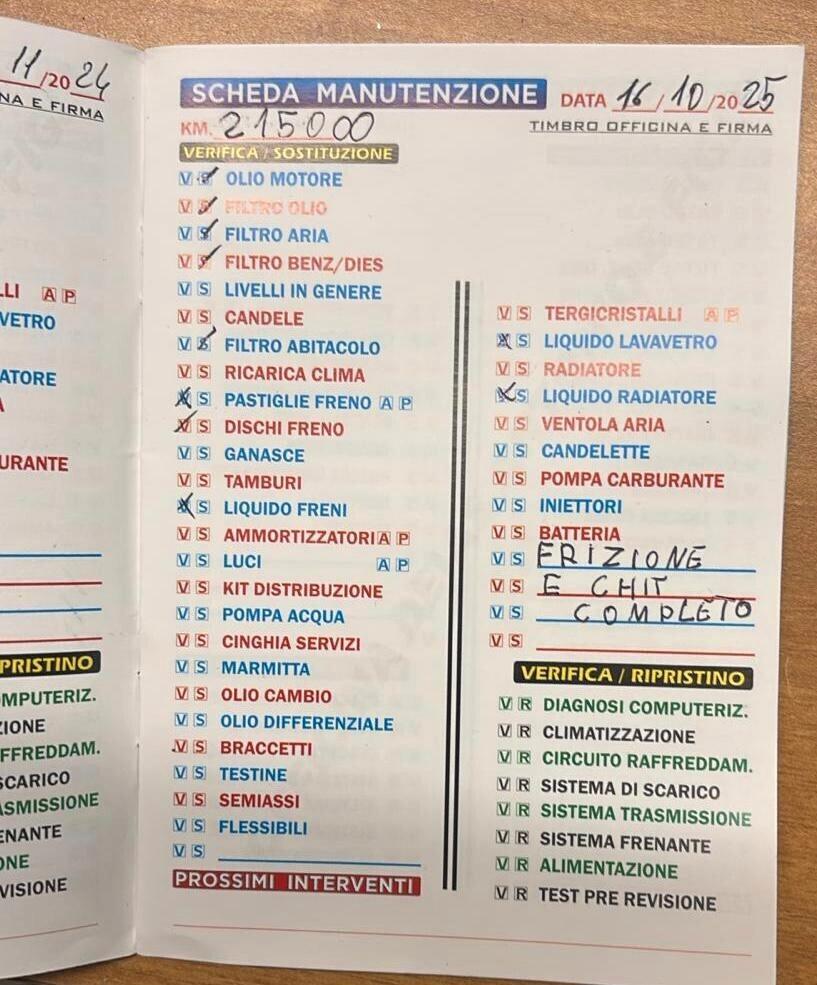 11/2024
NA E FIRMA
LLI A P
VETRO
ATORE
A
URANTE
PRISTINO
OMPUTERIZ.
ZIONE
AFFREDDAM.
SCARICO
ASMISSIONE
ENANTE
ONE
VISIONE
SCHEDA MANUTENZIONE
DATA 16/10/2025
KM. 215000
TIMBRO OFFICINA E FIRMA
VERIFICA / SOSTITUZIONE
V S OLIO MOTORE
V S FILTRO OLIO
V S FILTRO ARIA
V S FILTRO BENZ/DIES
V S LIVELLI IN GENERE
V S CANDELE
V S FILTRO ABITACOLO
V S RICARICA CLIMA
V S PASTIGLIE FRENO A P
V S DISCHI FRENO
V S GANASCE
V S TAMBURI
V S LIQUIDO FRENI
V S AMMORTIZZATORI A P
V S LUCI A P
V S KIT DISTRIBUZIONE
V S POMPA ACQUA
V S CINGHIA SERVIZI
V S MARMITTA
V S OLIO CAMBIO
V S OLIO DIFFERENZIALE
V S BRACCETTI
V S TESTINE
V S SEMIASSI
V S FLESSIBILI
V S
PROSSIMI INTERVENTI
V S TERGICRISTALLI A P
V S LIQUIDO LAVAVETRO
V S RADIATORE
V S LIQUIDO RADIATORE
V S VENTOLA ARIA
V S CANDELETTE
V S POMPA CARBURANTE
V S INIETTORI
V S BATTERIA
V S FRIZIONE
V S E CHIT
V S COMPLETO
V S
VERIFICA / RIPRISTINO
V R DIAGNOSI COMPUTERIZ.
V R CLIMATIZZAZIONE
V R CIRCUITO RAFFREDDAM.
V R SISTEMA DI SCARICO
V R SISTEMA TRASMISSIONE
V R SISTEMA FRENANTE
V R ALIMENTAZIONE
V R TEST PRE REVISIONE